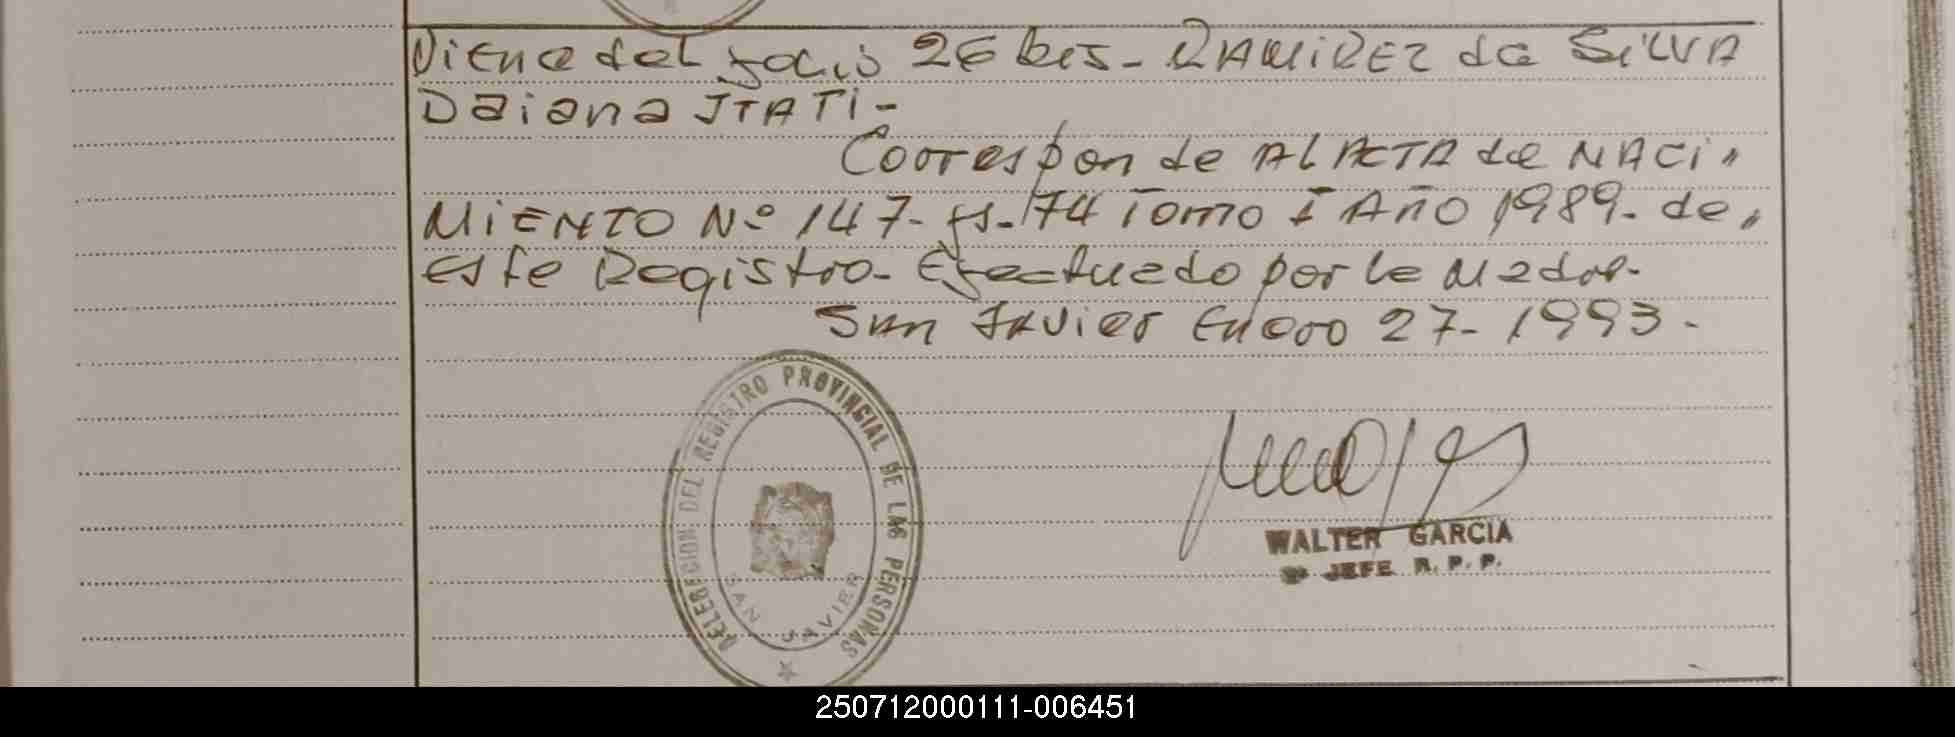 Viene del folio 26 bis - RAMIREZ da SILVA
Daiana ITATI -
Corresponde AL ACTA de NACI"
MIENTO Nº 147 - fs. 174 Tomo I AÑO 1989 - de,
este Registro - Efectuado por la Madre -
San Javier Enero 27 - 1993 -
DELEGACION DEL REGISTRO PROVINCIAL DE LAS PERSONAS
SAN JAVIER
WALTER GARCIA
JEFE R. P. P.
250712000111-006451